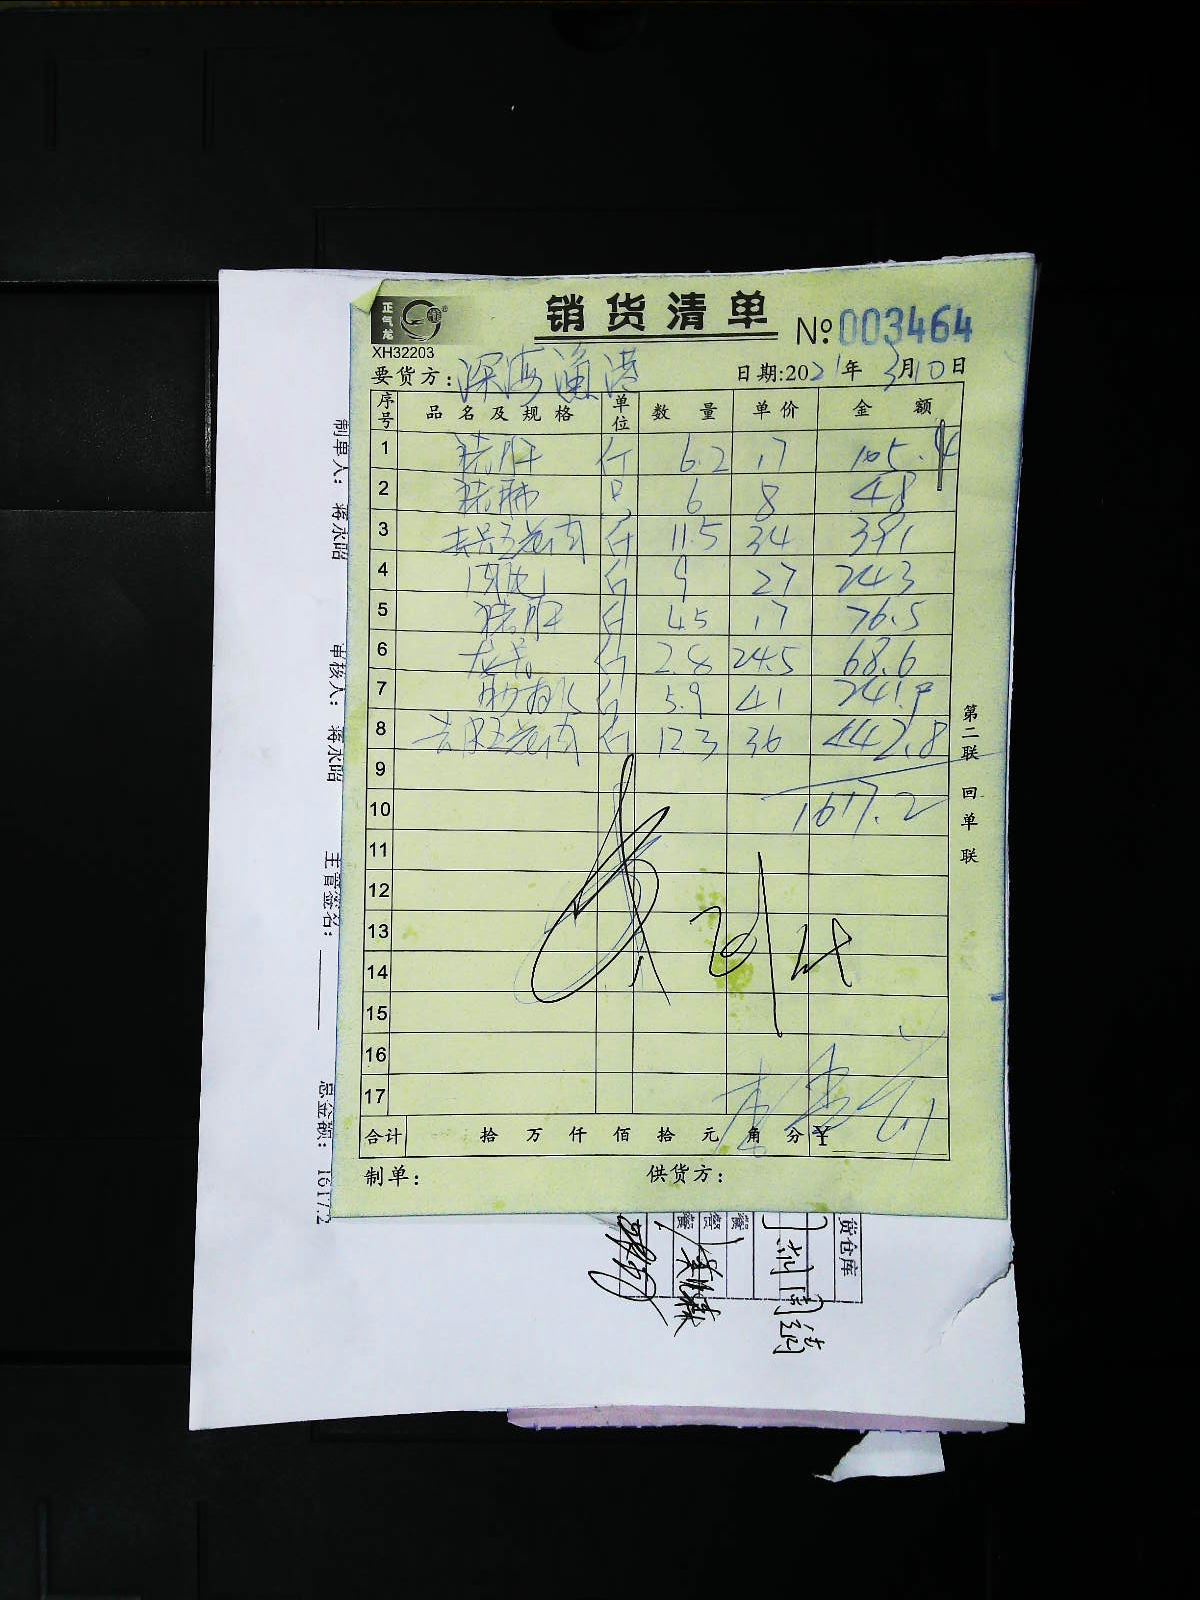 正气龙
销货清单
№:003464
XH32203
要货方: 深海渔港 日期:2021年3月10日
序号 品名及规格 单位 数量 单价 金额
1 猪肝 斤 6.2 17 105.4
2 猪肺 只 6 8 48
3 去骨五花肉 斤 11.5 34 391
4 斤 9 27 243
5 猪肚 斤 4.5 17 76.5
6 龙骨 斤 2.8 24.5 68.6
7 斤 5.9 41 241.9
8 去皮五花肉 斤 12.3 36 442.8
9
10 1617.2
11
12
13
14
15
16
17
合计 拾万仟佰拾元角分¥
制单: 供货方:
第二联 回单联
制单人: 蒋永昭 审核人: 蒋永昭 主管签名: 总金额: 1617.2
货仓库